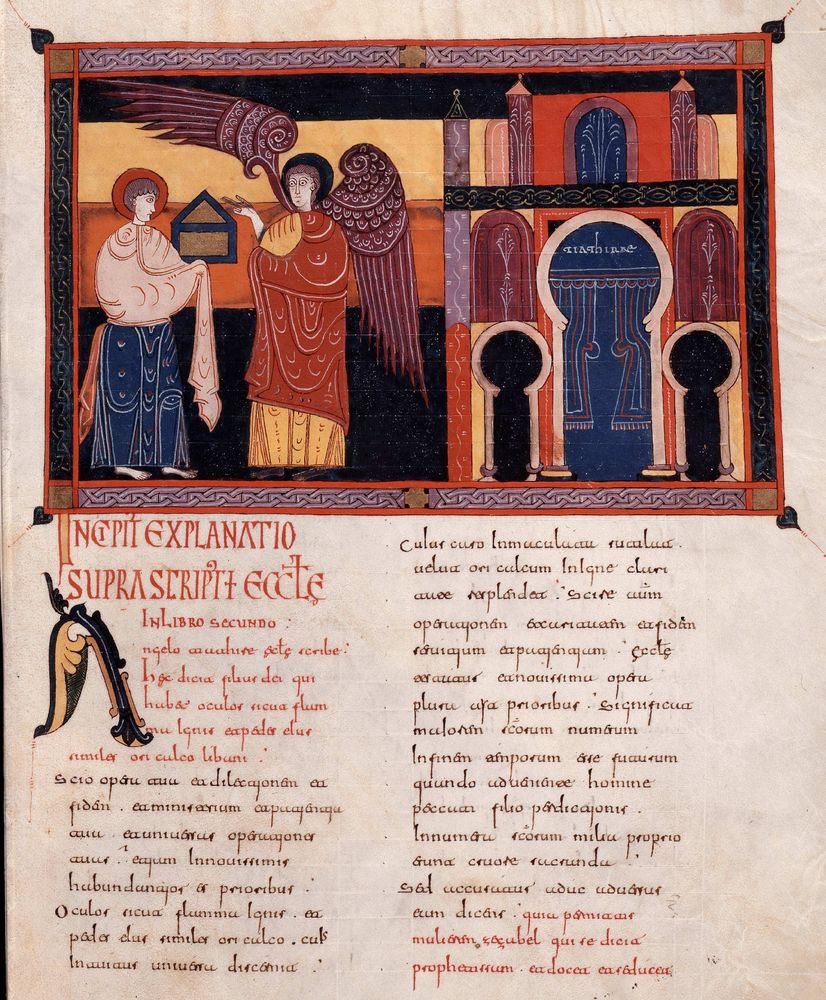 tiathirae
INCPIT EXPLANATIO
SUPRASCRIPTE ECCLE
IN LIBRO SECUNDO
Angelo tiatire eccle scribe
hec dicit filius dei qui
habet oculos sicut flam
ma Ignis et pedes eius
similes oricalco libani
Scio opera tua et dilectionem et
fidem . et ministerium et patientiam
tua . et universas operationes
tuas . Innovissimis
habundantior es prioribus
Oculos sicut flamma Ignis . et
pedes eius similes oricalco . cuius
Intuitus universa discernit
cuius caro Inmaculata rutilat .
velut oricalcum In igne clari
tate resplendet . Scire autem
operationem et caritatem et fidem
servitium et patientiam . eccle
et novissima opera
plura ista prioribus . Significat
maiorem scorum numerum
Infinem temporum esse futurum
quando advenerit homine
peccati filio perditionis .
Innumera scorum milia proprio
erunt cruore sacranda .
Sed accusatus aduc adversus
eum dicens . quia permittis
mulierem gezabel qui se dicit
prophetissam . et docet et seducet